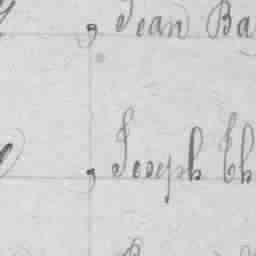 , Jean Ba
, Joseph Th